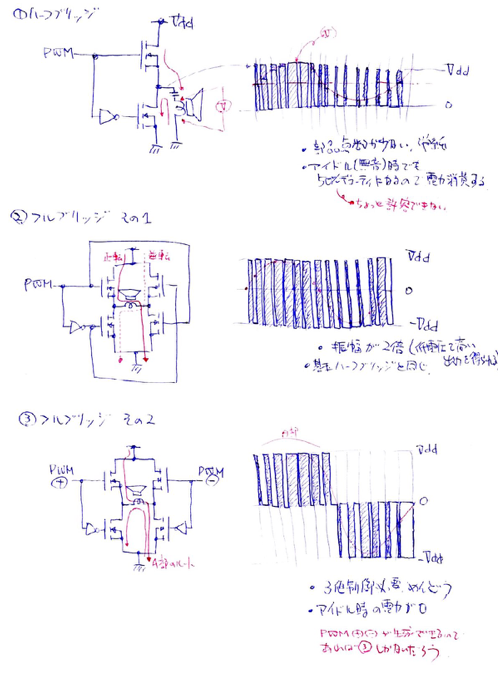 ①ハーフブリッジ
Vdd
PWM
Vdd
0
・部品点数が少ない、
・アイドル(無音)時でも
50%デューティになるので電力消費する
ちょっと許容できない
②フルブリッジ その1
正転
逆転
PWM
Vdd
0
-Vdd
・振幅が2倍(低電圧で高い
出力を得られる)
・基本ハーフブリッジと同じ
③フルブリッジ その2
PWM
⊕
PWM
⊖
A部のルート
A部
Vdd
0
-Vdd
・3値制御必要、めんどう
・アイドル時の電力が0
PWM(+)(-)が生成できるので
③しかないだろう